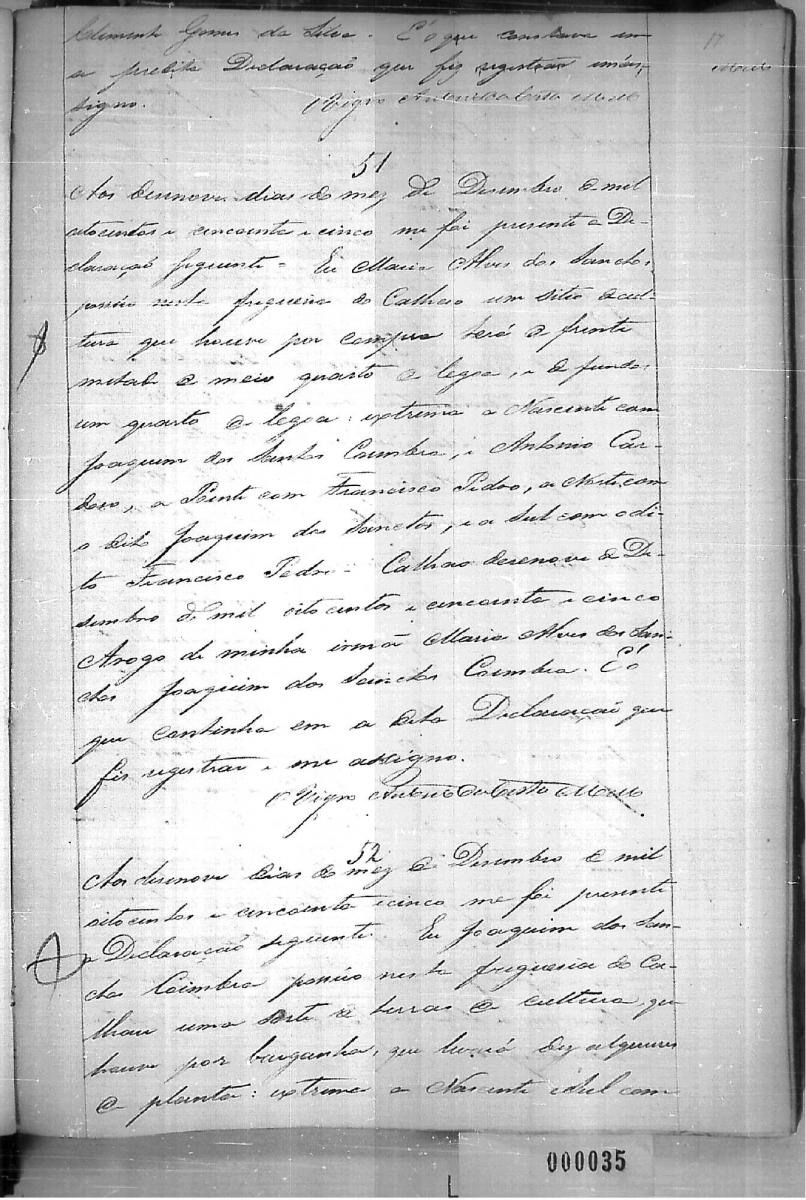 Clemente Gomes da Silva. É o que constava em
a predita Declaração que fiz registrar e me as-
signo. O Vigro Antonio da Costa Mello
17
Mello
51
Aos desenove dias do mez de Desembro de mil
oitocentos e cincoenta e cinco me foi presente a De-
claração seguinte = Eu Maria Alves dos Sanctos,
possúo nesta freguesia do Calhao um sitio de cul-
tura que houve por compra terá de frente
metade de meio quarto de legoa, e de fundos
um quarto de legoa: extrema a Nascente com
Joaquim dos Santos Coimbra, e Antonio Car-
doso, a Poente com Francisco Pedro, a Norte com
o dito Joaquim dos Sanctos, e a Sul com o di-
to Francisco Pedro = Calhao desenove de De-
sembro de mil oitocentos e cincoenta e cinco
Arogo de minha irmã Maria Alves dos San-
ctos Joaquim dos Sanctos Coimbra. É o
que continha em a dita Declaração que
fis registrar e me assigno.
O Vigro Antonio da Costa Mello
52
Aos desenove dias do mez de Desembro de mil
oitocentos e cincoenta e cinco me foi presente
a Declaração seguinte. Eu Joaquim dos San-
ctos Coimbra possúo nesta freguesia do Ca-
lhau uma sorte de terras de cultura, que
houve por barganha, que levará dez alqueires
de planta: extrema a Nascente e Sul com
000035